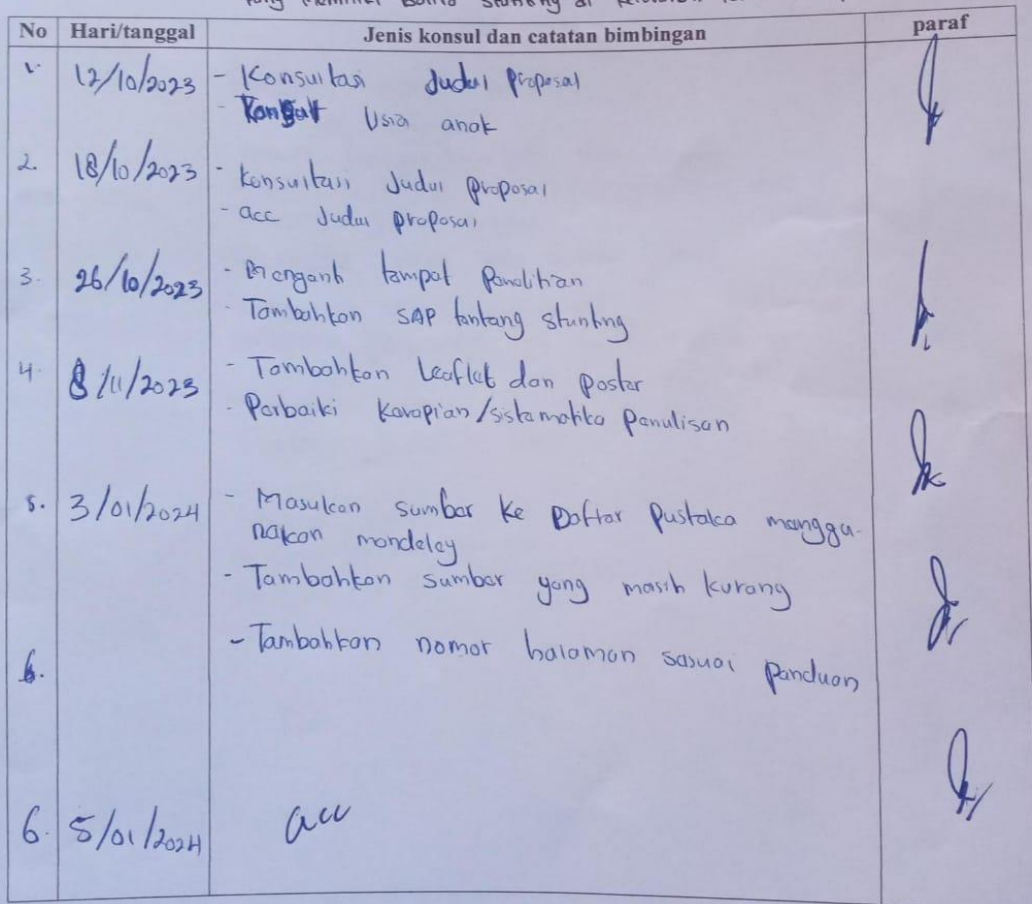 yang Memiliki Balita Stunting di
No Hari/tanggal Jenis konsul dan catatan bimbingan paraf
1. 12/10/2023 - Konsultasi Judul proposal
- Usia anak
2. 18/10/2023 - Konsultasi Judul proposal
- acc Judul proposal
3. 26/10/2023 - Menganti tempat Penelitian
- Tambahkan SAP tentang stunting
4. 8/11/2023 - Tambahkan Leaflet dan poster
- Perbaiki Kerapian/sistematika Penulisan
5. 3/01/2024 - Masukan sumber ke Daftar Pustaka menggu-
nakan mendeley
- Tambahkan sumber yang masih kurang
6. - Tambahkan nomor halaman sesuai panduan
6. 5/01/2024 acc